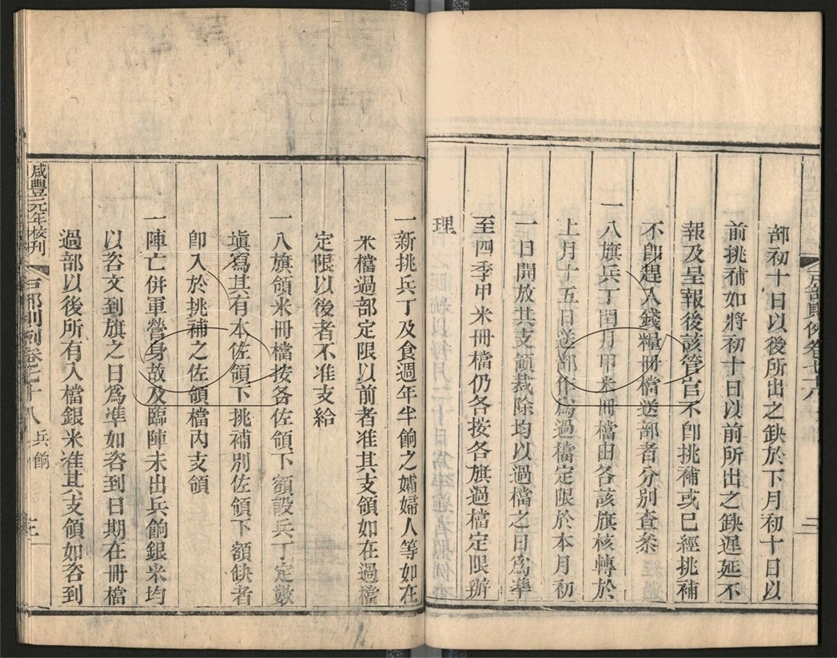 部初十日以後所出之缺於下月初十日以
前挑補如將初十日以前所出之缺遲延不
報及呈報後該管官不卽挑補或已經挑補
不卽趕入錢糧冊檔送部者分別查叅
一八旗兵丁閏月甲米冊檔由各該旗核轉於
上月十五日送部作爲過檔定限於本月初
一日開放其支領裁除均以過檔之日爲準
至四季甲米冊檔仍各按各旗過檔定限辦
理
一新挑兵丁及食週年半餉之孀婦人等如在
米檔過部定限以前者准其支領如在過檔
定限以後者不准支給
一八旗領米冊檔按各佐領下額設兵丁定數
塡寫其有本佐領下挑補別佐領下額缺者
卽入於挑補之佐領檔內支領
一陣亡併軍營身故及臨陣未出兵餉銀米均
以咨文到旗之日爲準如咨到日期在冊檔
過部以後所有入檔銀米准其支領如咨到
咸豐元年校刊
戶部則例卷七十八 兵餉